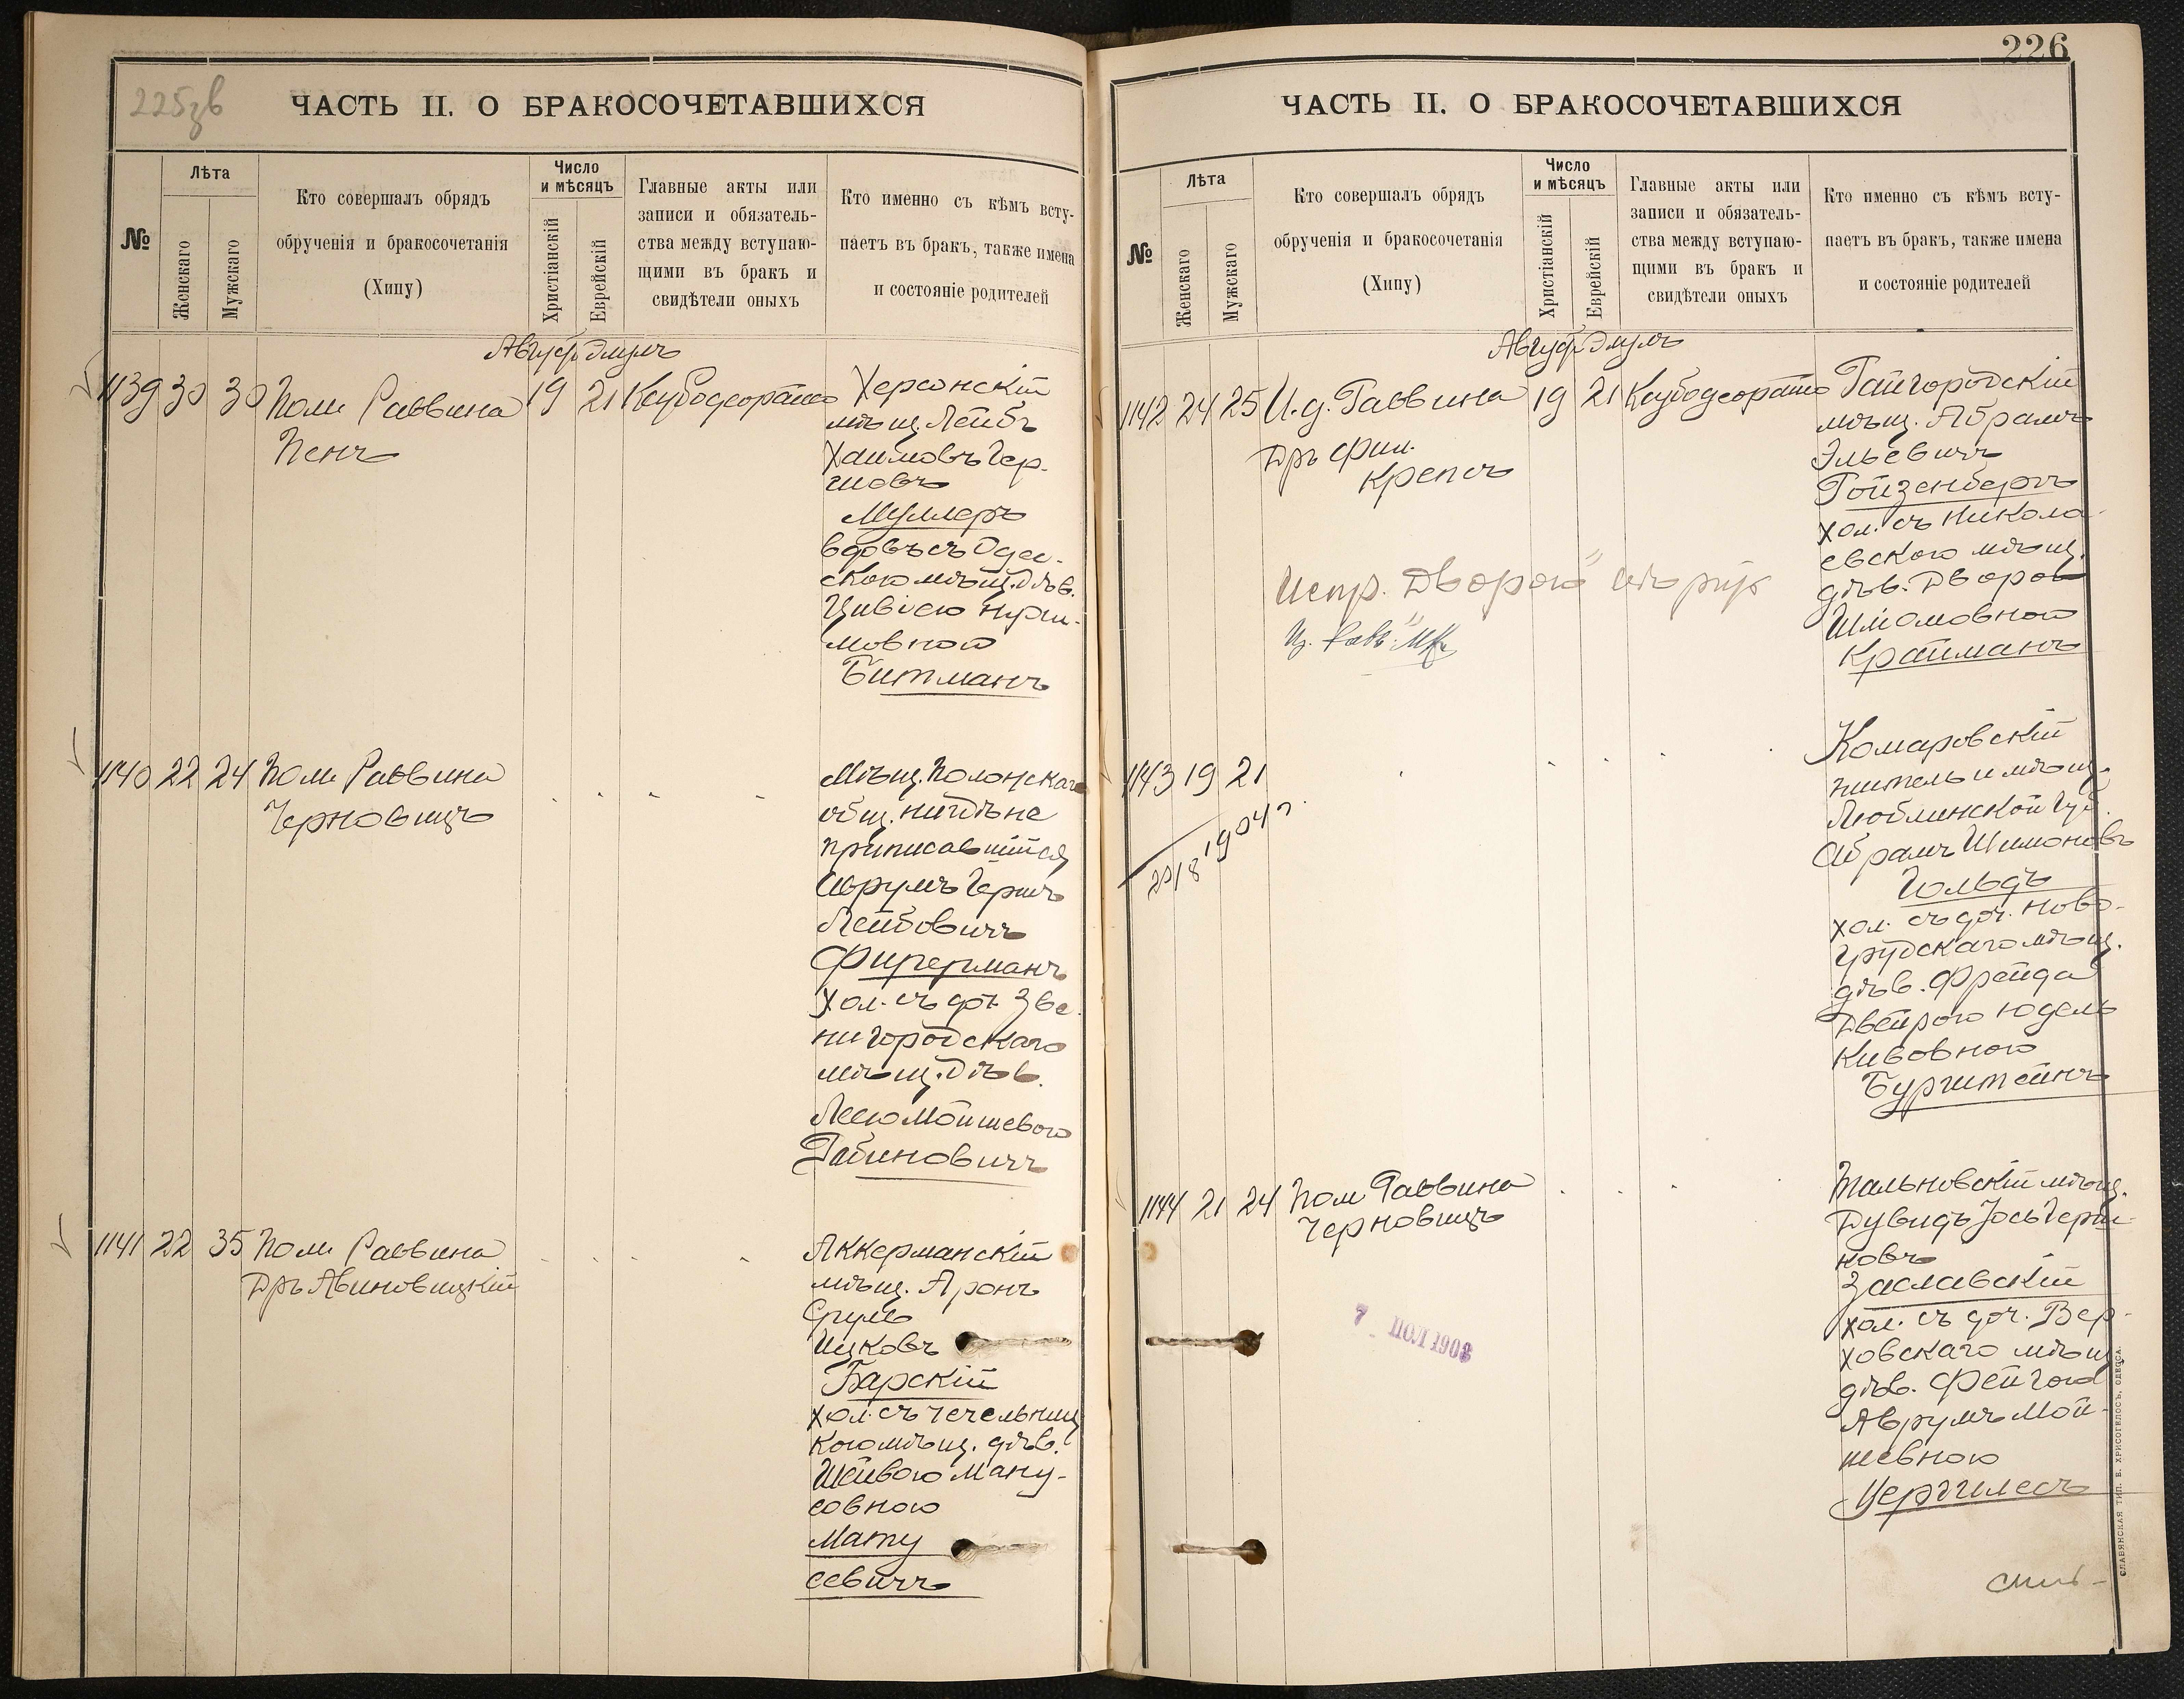 225зв
ЧАСТЬ II. О БРАКОСОЧЕТАВШИХСЯ
№
Лѣта
Женскаго
Мужскаго
Кто совершалъ обрядъ
обрученія и бракосочетанія
(Хипу)
Число
и мѣсяцъ
Христіанскій
Еврейскій
Главные акты или
записи и обязатель-
ства между вступаю-
щими въ бракъ и
свидѣтели оныхъ
Кто именно съ кѣмъ всту-
паетъ въ бракъ, также имена
и состояніе родителей
Элулъ
1139 30 30 Пом. Раввина 19 21
Пенъ
Херсонскій
мѣщ. Лейбъ
Хаимовъ Гер-
шовъ
Муллеръ
вдовъ съ Одес-
скою мѣщ. дѣв.
Цивіею
мовной
Битманъ
1140 22 24 Пом. Раввина
Черновицъ
Мѣщ. Полонскаго
общ. нигдѣ не
приписавшійся
Аврумъ Гершъ
Лейбовичъ
Фирерманъ
хол. съ доч. Зве-
нигородскаго
мѣщ. дѣв.
Леею Мойшевою
Рабиновичъ
1141 22 35 Пом. Раввина
Дръ Авиновицкій
Аккерманскій
мѣщ. Аронъ
Срулъ
Ицковъ
Барскій
хол. съ Чечельниц
кою мѣщ. дѣв.
Шейвою Ману-
совною
Мату
севичъ
226
ЧАСТЬ II. О БРАКОСОЧЕТАВШИХСЯ
№
Лѣта
Женскаго
Мужскаго
Кто совершалъ обрядъ
обрученія и бракосочетанія
(Хипу)
Число
и мѣсяцъ
Христіанскій
Еврейскій
Главные акты или
записи и обязатель-
ства между вступаю-
щими въ бракъ и
свидѣтели оныхъ
Кто именно съ кѣмъ всту-
паетъ въ бракъ, также имена
и состояніе родителей
Элулъ
1142 24 25 И. д. Раввина 19 21
Дръ фил.
Крепсъ
Испр. "Дворою"
Гайгородскій
мѣщ. Абрамъ
Эльевичъ
Ройзенбергъ
хол. съ Никола-
евскою мѣщ.
дѣв. Дворой
Шліомовной
Крайманъ
1143 19 21
20/8 1904 г.
Комаровскій
житель и мѣщ.
Люблинской губ.
Абрамъ Шимоновъ
Гольдъ
хол. съ доч. Ново-
грудскаго мѣщ.
дѣв. Фрейда
Двейрою Юдель
Кивовною
Бурштейнъ
1144 21 24 Пом. Раввина
Черновицъ
7 ІЮЛ 1903
Тальновскій мѣщ.
Дувидъ Іось Герш-
новъ
Заславскій
хол. съ доч. Вер-
ховскаго мѣщ.
дѣв. Фейгою
Аврумъ Мой-
шевною
Цергилесъ
СЛАВЯНСКАЯ ТИП. Е. ХРИСОГЕЛОСЪ, ОДЕССА.